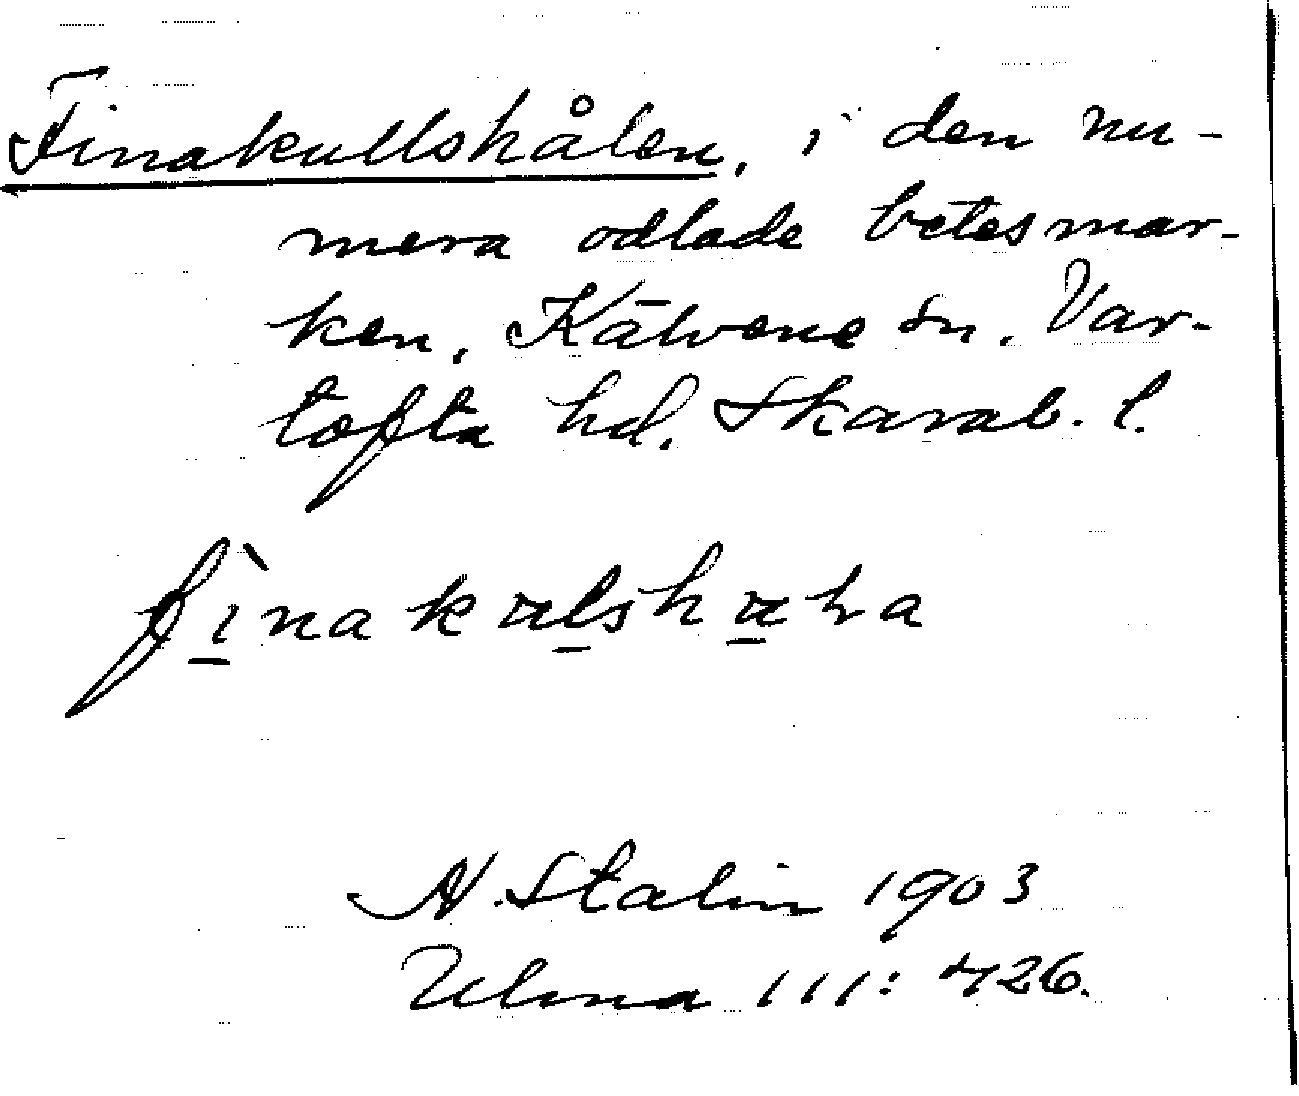 Finakullskålen, i den nu-
mera odlade betesmar-
ken, Kälvene sn. Var-
tofta hd. Skarab. l.
N. Stalin 1903
Ulma 111: 426.